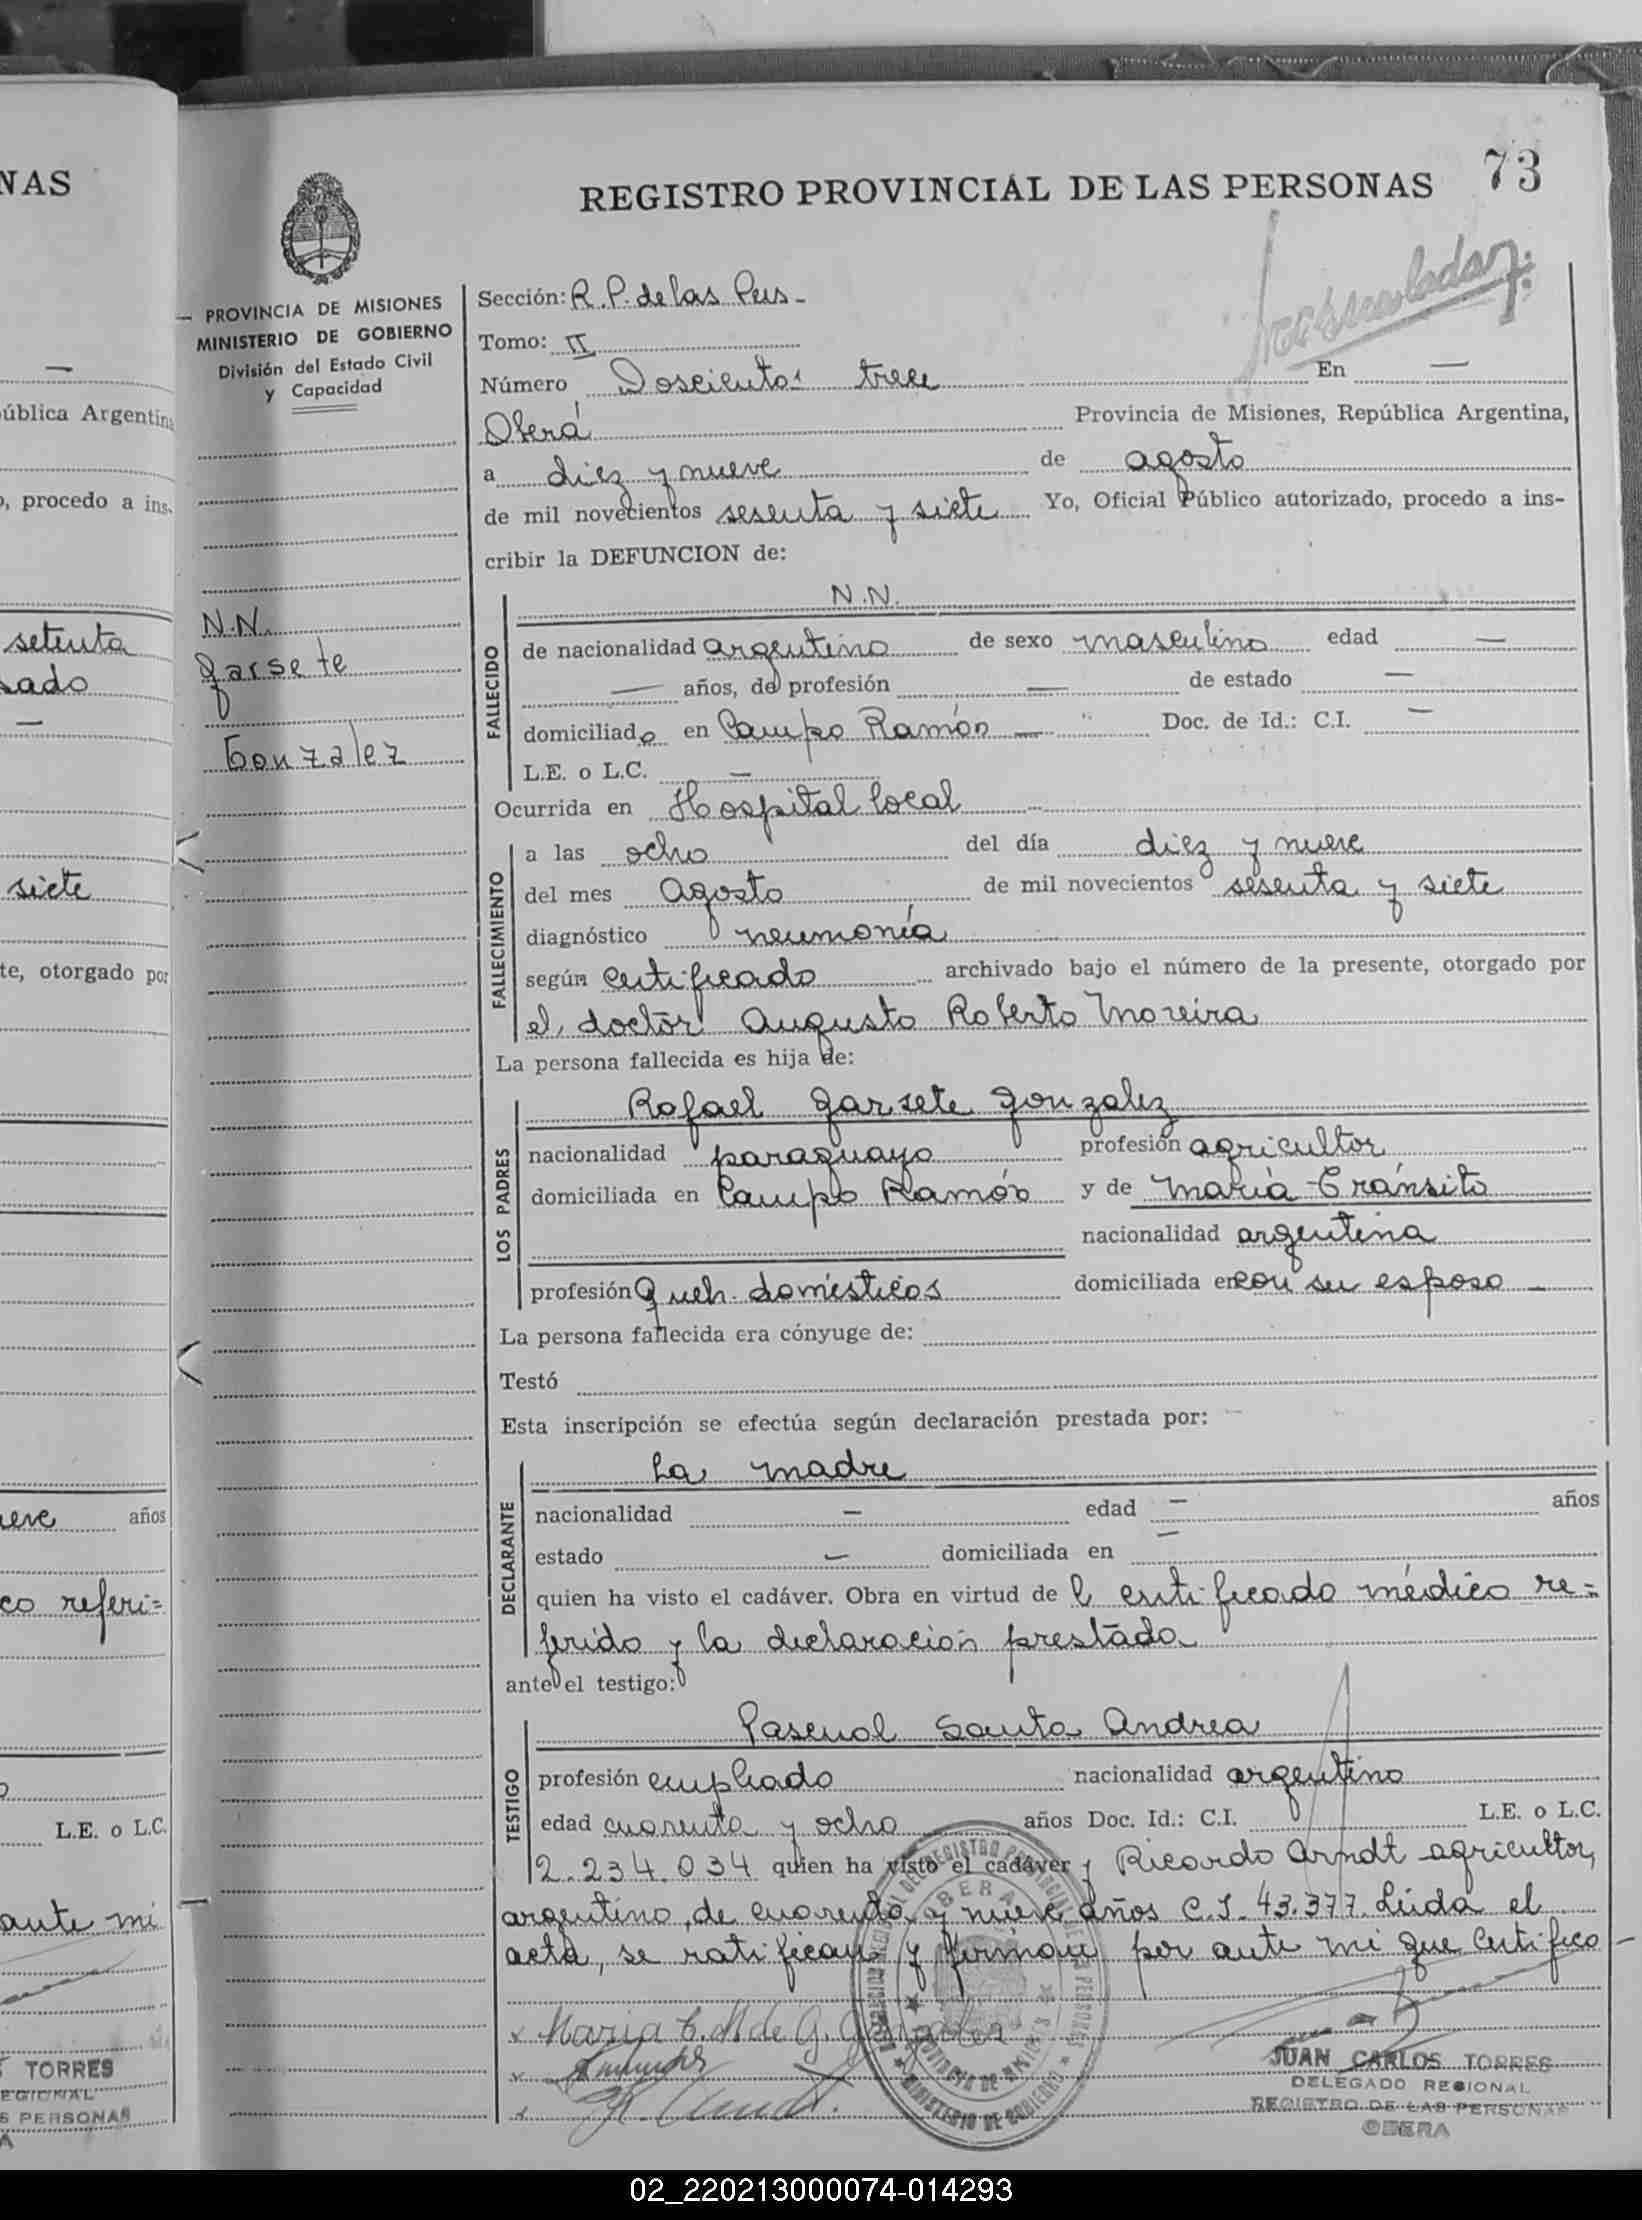 NAS
ública Argentina
o, procedo a ins-
setenta
sado
siete
te, otorgado por
años
co referi=
L.E. o L.C.
ante mi
TORRES
REGIONAL
S PERSONAS
73
REGISTRO PROVINCIAL DE LAS PERSONAS
PROVINCIA DE MISIONES
MINISTERIO DE GOBIERNO
División del Estado Civil
y Capacidad
N.N.
Garsete
Gonzalez
Sección: R. P. de las Pers -
Tomo: II
Número Doscientos trece En —
Oberá Provincia de Misiones, República Argentina,
a diez y nueve de agosto
de mil novecientos sesenta y siete Yo, Oficial Público autorizado, procedo a ins-
cribir la DEFUNCION de:
FALLECIDO
N.N.
de nacionalidad argentino de sexo masculino edad —
— años, de profesión — de estado —
domiciliado en Campo Ramón — Doc. de Id.: C.I. —
L.E. o L.C. —
Ocurrida en Hospital local
FALLECIMIENTO
a las ocho del día diez y nueve
del mes Agosto de mil novecientos sesenta y siete
diagnóstico neumonía
según certificado archivado bajo el número de la presente, otorgado por
el doctor Augusto Roberto Moreira
La persona fallecida es hija de:
LOS PADRES
Rafael Garsete Gonzalez
nacionalidad paraguayo profesión agricultor
domiciliada en Campo Ramón y de María Tránsito
nacionalidad argentina
profesión queh. domésticos domiciliada en con su esposo —
La persona fallecida era cónyuge de:
Testó
Esta inscripción se efectúa según declaración prestada por:
DECLARANTE
La madre
nacionalidad — edad — años
estado — domiciliada en —
quien ha visto el cadáver. Obra en virtud del certificado médico re=
ferido y la declaración prestada
ante el testigo:
TESTIGO
Pascual Santa Andrea
profesión empleado nacionalidad argentino
edad cuarenta y ocho años Doc. Id.: C.I. L.E. o L.C.
2.234.034 quien ha visto el cadáver y Ricardo Arndt agricultor,
argentino, de cuarenta y nueve años C.I. 43.377. Leida el
acta, se ratifican y firman por ante mi que certifico —
x Maria T. M de G. Gonzalez
JUAN CARLOS TORRES
DELEGADO REGIONAL
REGISTRO DE LAS PERSONAS
OBERA
02_220213000074-014293